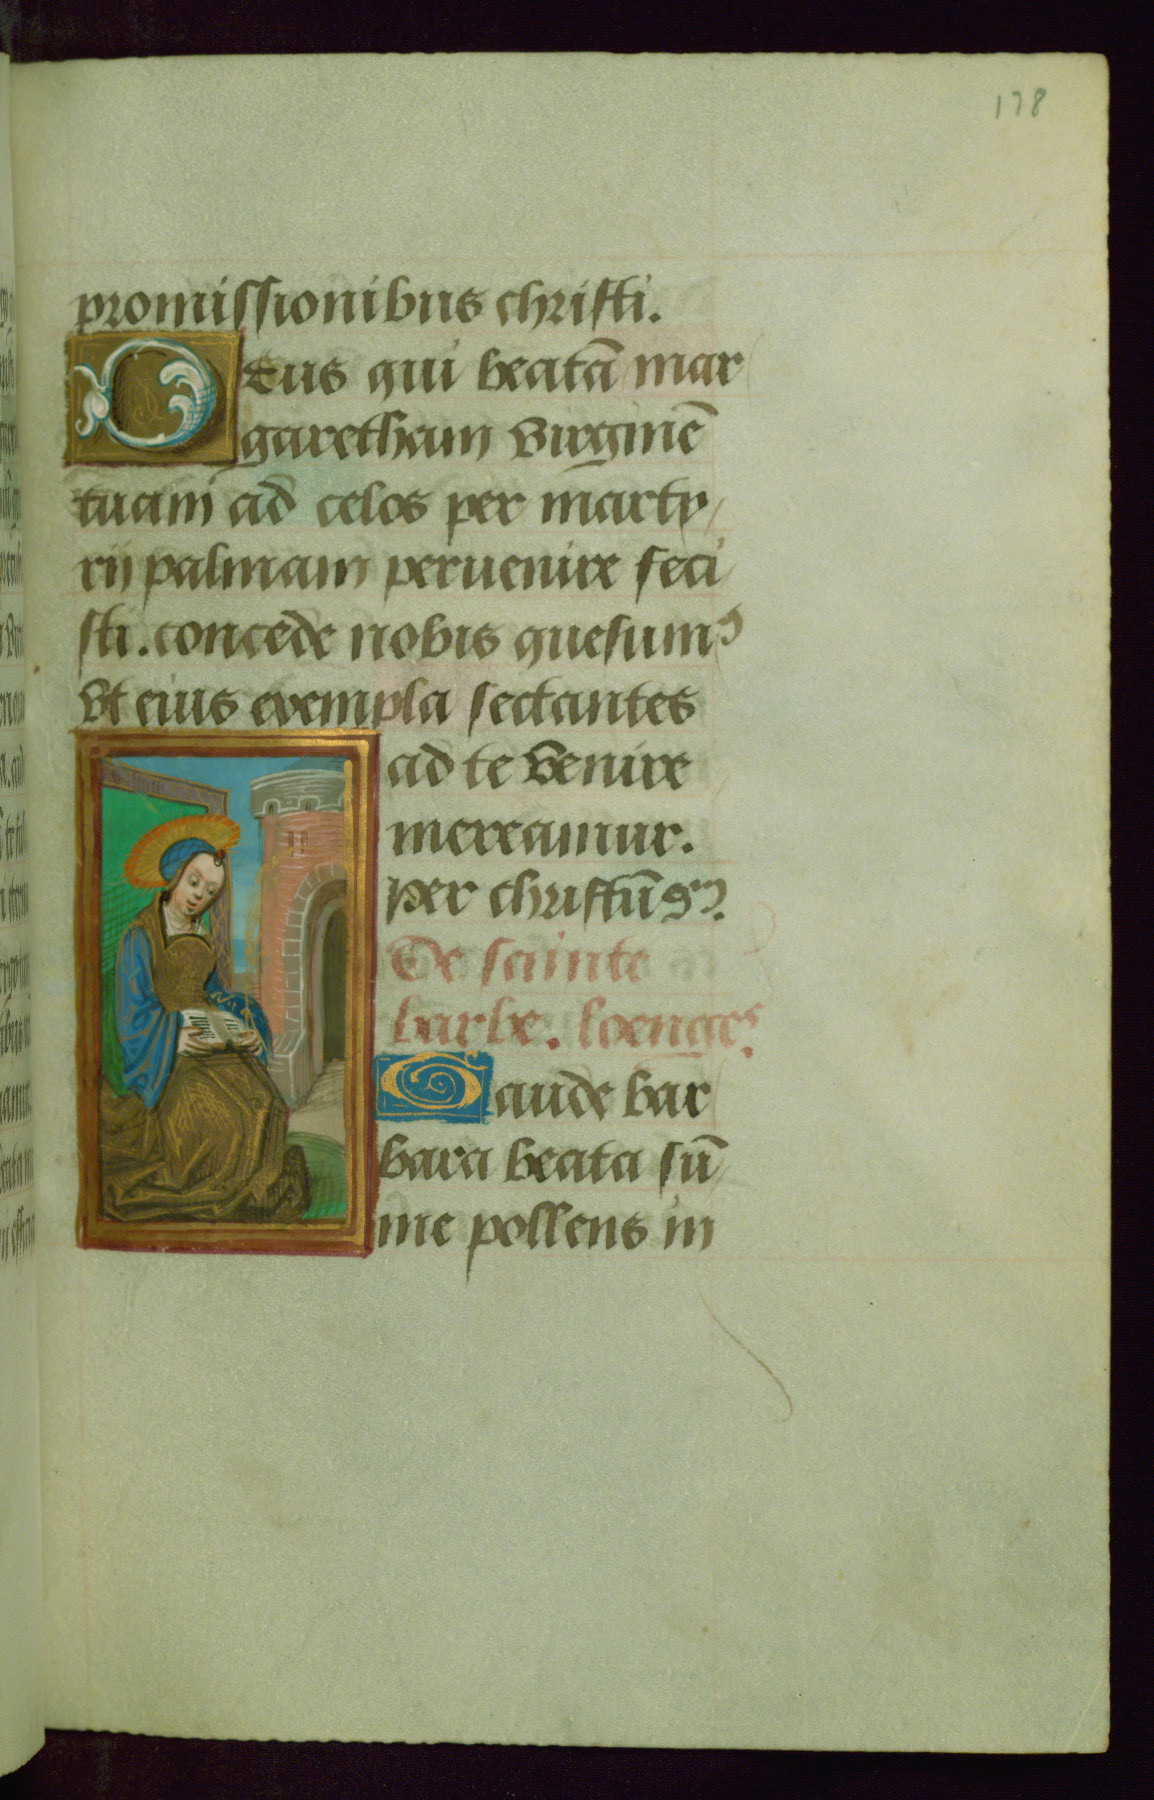 178
promissionibus christi.
Deus qui beatā mar
garetham virginē
tuam ad celos per marty
rij palmam peruenire feci
sti. concede nobis quesumꝰ
vt eius exempla sectantes
ad te venire
mereamur.
Per christū
De sainte
barbe. loenges.
Gaude bar
bara beata sū
me pollens in